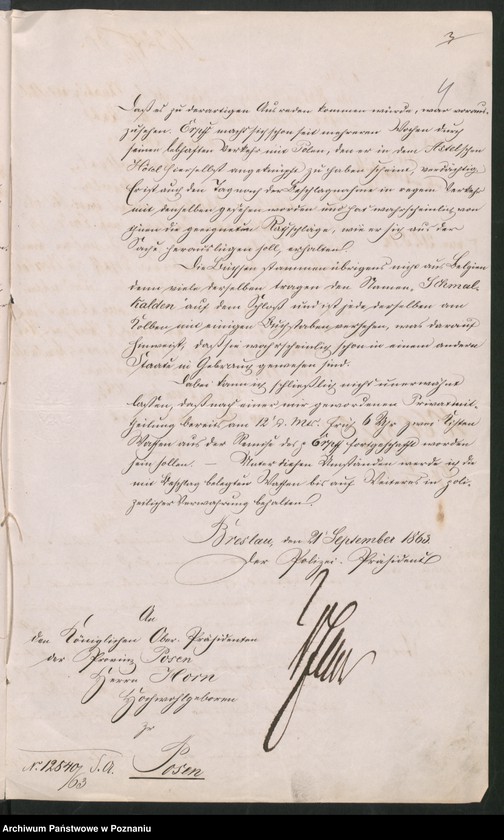 3
4
daß es zu derartigen Ausreden kommen würde, war voraus-
zusehen. Erpff macht sich schon seit mehreren Wochen durch
seinen lebhaften Verkehr mit Polen, den er in dem Astelschen
Hôtel hierselbst angeknüpft zu haben scheint, verdächtig
Er ist auch den Tag nach der Beschlagnahme in regem Verkehr
mit denselben gesehen worden und hat wahrscheinlich von
ihnen die geeigneten Rathschläge, wie er sich aus der
Sache herauslügen soll, erhalten.
Die Büchsen stammen übrigens nicht aus Belgien
denn viele derselben tragen den Namen "Schmal-
kalden" auf dem Schloß und ist jede derselben am
Kolben mit einigen Buchstaben versehen, was darauf
hinweist, daß sie wahrscheinlich schon in einem andern
Staate in Gebrauch gewesen sind.
Dabei kann ich schließlich nicht unerwähnt
lassen, daß nach einer mir gewordenen Privatmit-
theilung bereits am 12t d. Mts. früh 6 Uhr zwei Kisten
Waffen aus der Remise des p Erpff fortgeschafft worden
sein sollen. — Unter diesen Umständen werde ich die
mit Beschlag belegten Waffen bis auf Weiteres in poli-
zeilicher Verwahrung behalten.
Breslau, den 21t September 1863.
Der Polizei-Präsident
An
den Königlichen Ober-Präsidenten
der Provinz Posen
Herrn Horn
Hochwohlgeboren
zu
Posen
N. 12840/63 S.A.
Archiwum Państwowe w Poznaniu